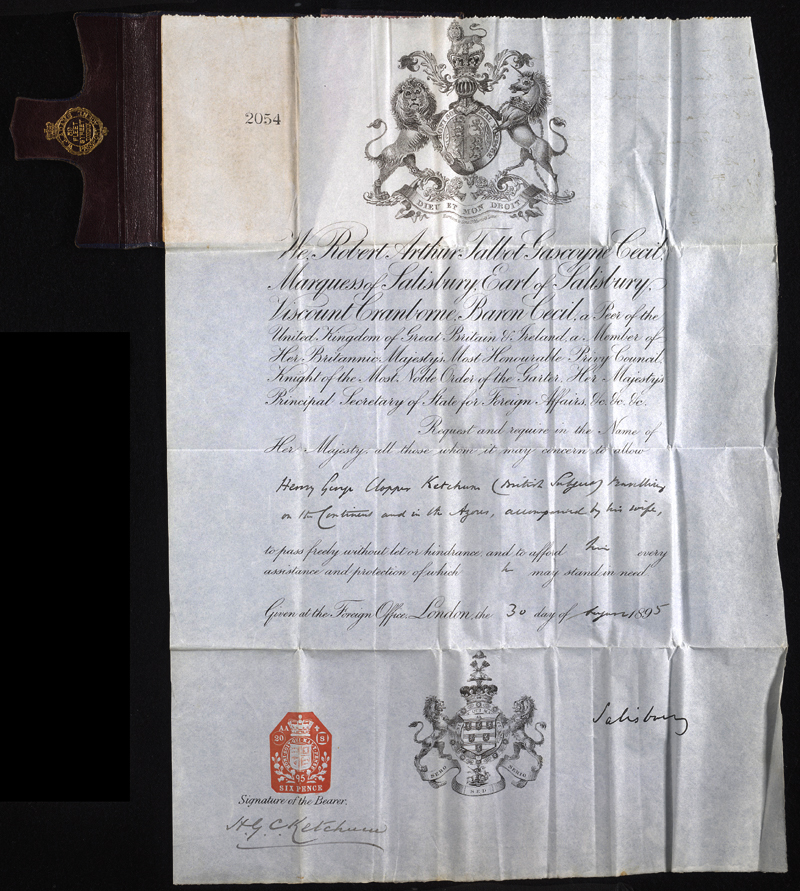 2054
DIEU ET MON DROIT
We, Robert Arthur Talbot Gascoyne Cecil,
Marquess of Salisbury, Earl of Salisbury,
Viscount Cranborne, Baron Cecil, a Peer of the
United Kingdom of Great Britain & Ireland, a Member of
Her Britannic Majesty's Most Honourable Privy Council,
Knight of the Most Noble Order of the Garter, Her Majesty's
Principal Secretary of State for Foreign Affairs, &c. &c. &c.
Request and require in the Name of
Her Majesty, all those whom it may concern to allow
Henry George Clopper Ketchum (British Subject) travelling
on the Continent and in the Azores, accompanied by his wife,
to pass freely without let or hindrance, and to afford him every
assistance and protection of which he may stand in need.
Given at the Foreign Office, London, the 30 day of August 1895
Salisbury
SERO SED SERIO
95
SIX PENCE
Signature of the Bearer.
H.G.C. Ketchum